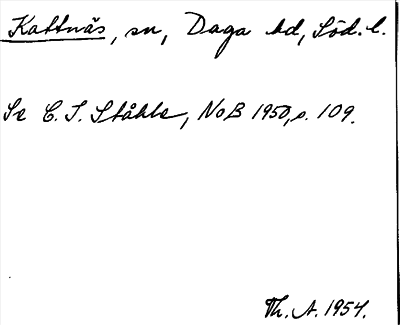 Kattnäs, sn, Daga hd, Söd. l.
Se C. I. Ståhle, NoB 1950, s. 109.
Th. A. 1954.